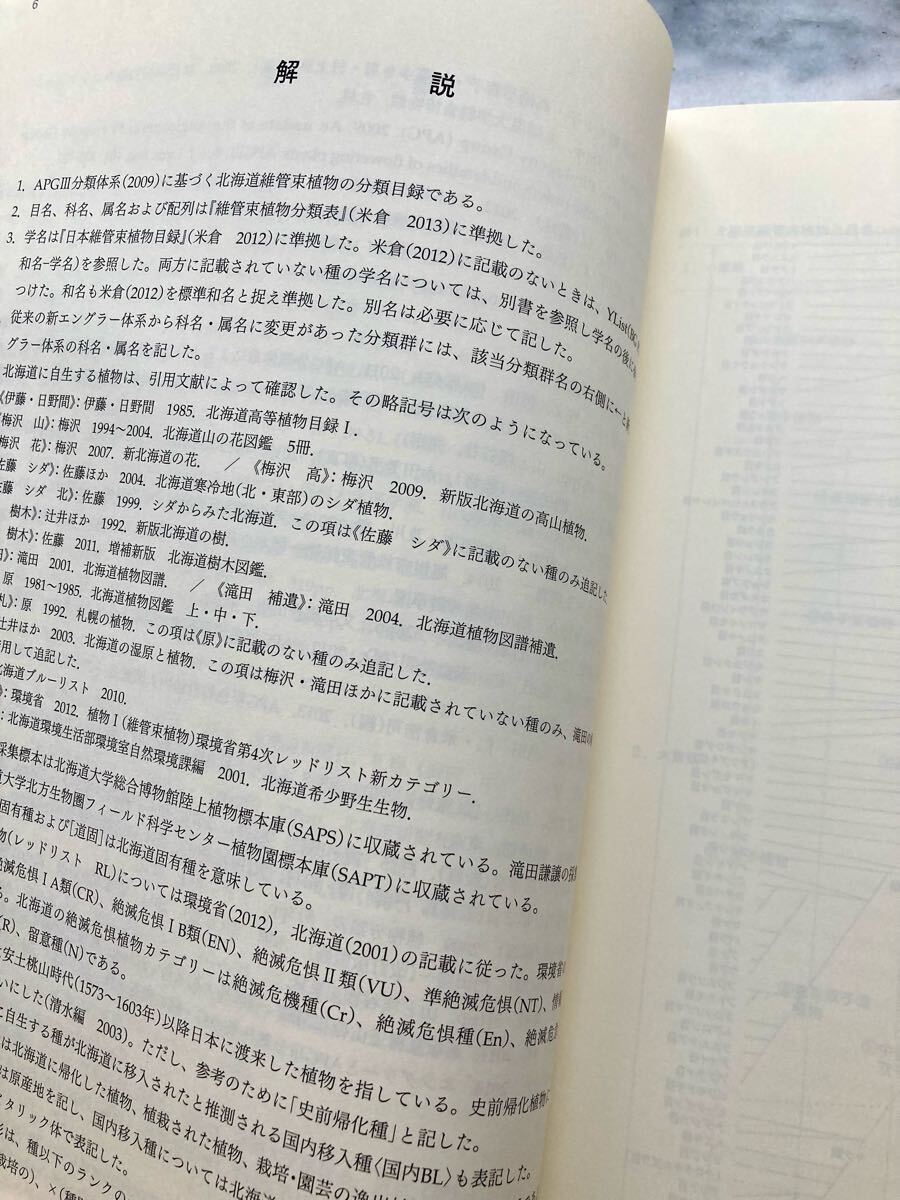 6
解　説
1. APGⅢ分類体系(2009)に基づく北海道維管束植物の分類目録である。
2. 目名、科名、属名および配列は『維管束植物分類表』(米倉　2013)に準拠した。
3. 学名は『日本維管束植物目録』(米倉　2012)に準拠した。米倉(2012)に記載のないときは、YList(BG
和名−学名)を参照した。両方に記載されていない種の学名については、別書を参照し学名の後に
つけた。和名も米倉(2012)を標準和名と捉え準拠した。別名は必要に応じて記した。
従来の新エングラー体系から科名・属名に変更があった分類群には、該当分類群名の右側に←と
グラー体系の科名・属名を記した。
北海道に自生する植物は、引用文献によって確認した。その略記号は次のようになっている。
《伊藤・日野間》：伊藤・日野間　1985. 北海道高等植物目録Ⅰ.
梅沢　山》：梅沢　1994〜2004. 北海道山の花図鑑　5冊.
梅沢　花》：梅沢　2007. 新北海道の花.　／　《梅沢　高》：梅沢　2009. 新版北海道の高山植物.
佐藤　シダ》：佐藤ほか　2004. 北海道寒冷地(北・東部)のシダ植物.
佐藤　シダ　北》：佐藤　1999. シダからみた北海道. この項は《佐藤　シダ》に記載のない種のみ追記した.
樹木》：辻井ほか　1992. 新版北海道の樹.
樹木》：佐藤　2011. 増補新版　北海道樹木図鑑.
》：滝田　2001. 北海道植物図譜.　／　《滝田　補遺》：滝田　2004. 北海道植物図譜補遺.
原　1981〜1985. 北海道植物図鑑　上・中・下.
札》：原　1992. 札幌の植物. この項は《原》に記載のない種のみ追記した.
辻井ほか　2003. 北海道の湿原と植物. この項は梅沢・滝田ほかに記載されていない種のみ、滝田の
用して追記した.
北海道ブルーリスト　2010.
：環境省　2012. 植物Ⅰ(維管束植物)環境省第4次レッドリスト新カテゴリー.
：北海道環境生活部環境室自然環境課編　2001. 北海道希少野生生物.
採集標本は北海道大学総合博物館陸上植物標本庫(SAPS)に収蔵されている。滝田謙譲の採
道大学北方生物圏フィールド科学センター植物園標本庫(SAPT)に収蔵されている。
固有種および[道固]は北海道固有種を意味している。
物(レッドリスト　RL)については環境省(2012)，北海道(2001)の記載に従った。環境省
絶滅危惧ⅠA類(CR)、絶滅危惧ⅠB類(EN)、絶滅危惧Ⅱ類(VU)、準絶滅危惧(NT)、情
る。北海道の絶滅危惧植物カテゴリーは絶滅危機種(Cr)、絶滅危惧種(En)、絶滅危
(R)、留意種(N)である。
安土桃山時代(1573〜1603年)以降日本に渡来した植物を指している。史前帰化植物
いにした(清水編　2003)。ただし、参考のために「史前帰化種」と記した。
に自生する種が北海道に移入されたと推測される国内移入種〈国内BL〉も表記した。
は北海道に帰化した植物、植栽された植物、栽培・園芸の逸出
は原産地を記し、国内移入種については北海
イタリック体で表記した。
形は、種以下のランクの
栽培の)、×(種